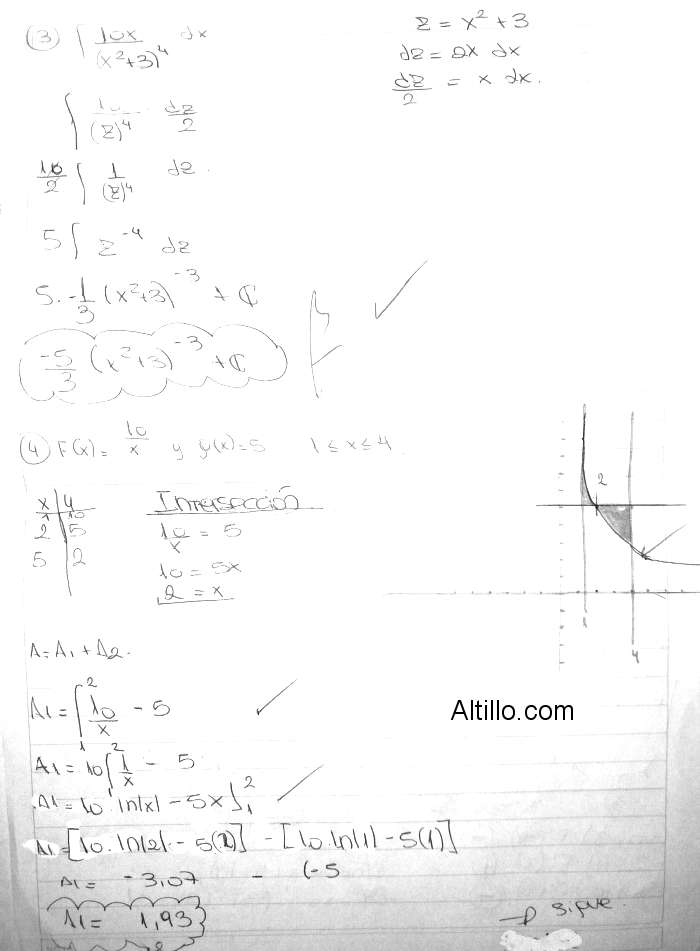 (3) ∫ 10x/(x²+3)⁴ dx
z = x² + 3
dz = 2x dx
dz/2 = x dx.
∫ 10/(z)⁴ · dz/2
10/2 ∫ 1/(z)⁴ dz.
5 ∫ z⁻⁴ dz
5 · -1/3 (x²+3)⁻³ + C
-5/3 (x²+3)⁻³ + C
(4) F(x) = 10/x y y(x) = 5 1 ≤ x ≤ 4.
x | y
1 | 10
2 | 5
5 | 2
Intersección
10/x = 5
10 = 5x
2 = x
2
1
4
A = A1 + A2.
A1 = ∫₁² 10/x - 5
A1 = 10 ∫₁² 1/x - 5
A1 = 10 ln|x| - 5x ]₁²
A1 = [10. ln|2| - 5(2)] - [10. ln|1| - 5(1)]
A1 = -3,07 - (-5
A1 = 1,93
→ sigue.
Altillo.com